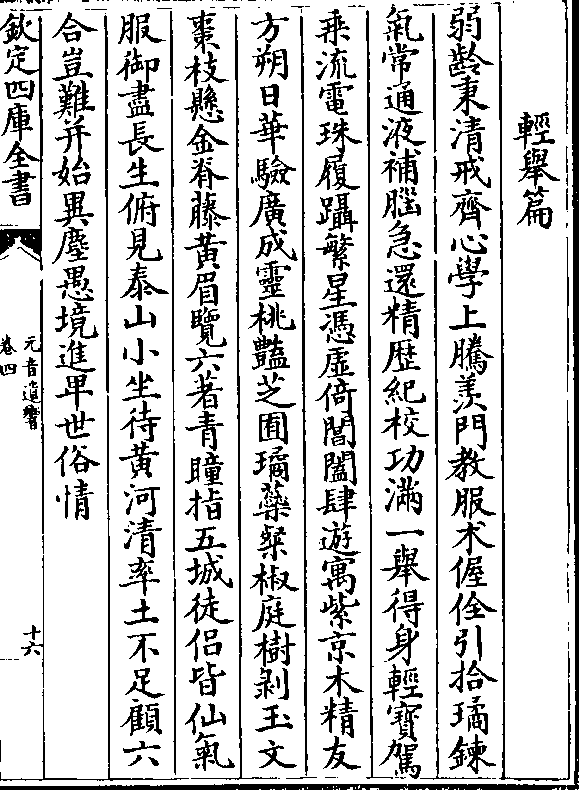 輕舉篇
弱齡秉清戒齊心學上騰羨門教服术偓佺引拾璚鍊
氣常通液補腦急還精歴紀校功滿一舉得身輕寶駕
乘流電珠履躡繁星憑虛倚閶闔肆遊寓紫京木精友
方朔日華驗廣成靈桃豔芝囿璚蘂粲椒庭樹剝玉文
棗枝懸金脊藤黃眉覽六著青瞳指五城徒侣皆仙氣
服御盡長生俯見泰山小坐待黃河清率土不足顧六
合豈難并始異塵愚境進早世俗情
欽定四庫全書
元音遺響
卷四
十六